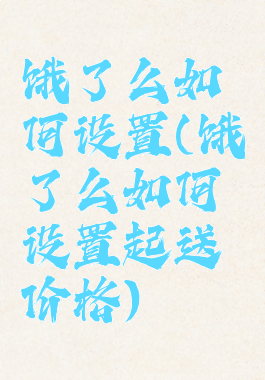 饿了么如
何设置(饿
了么如何
设置起送
价格)